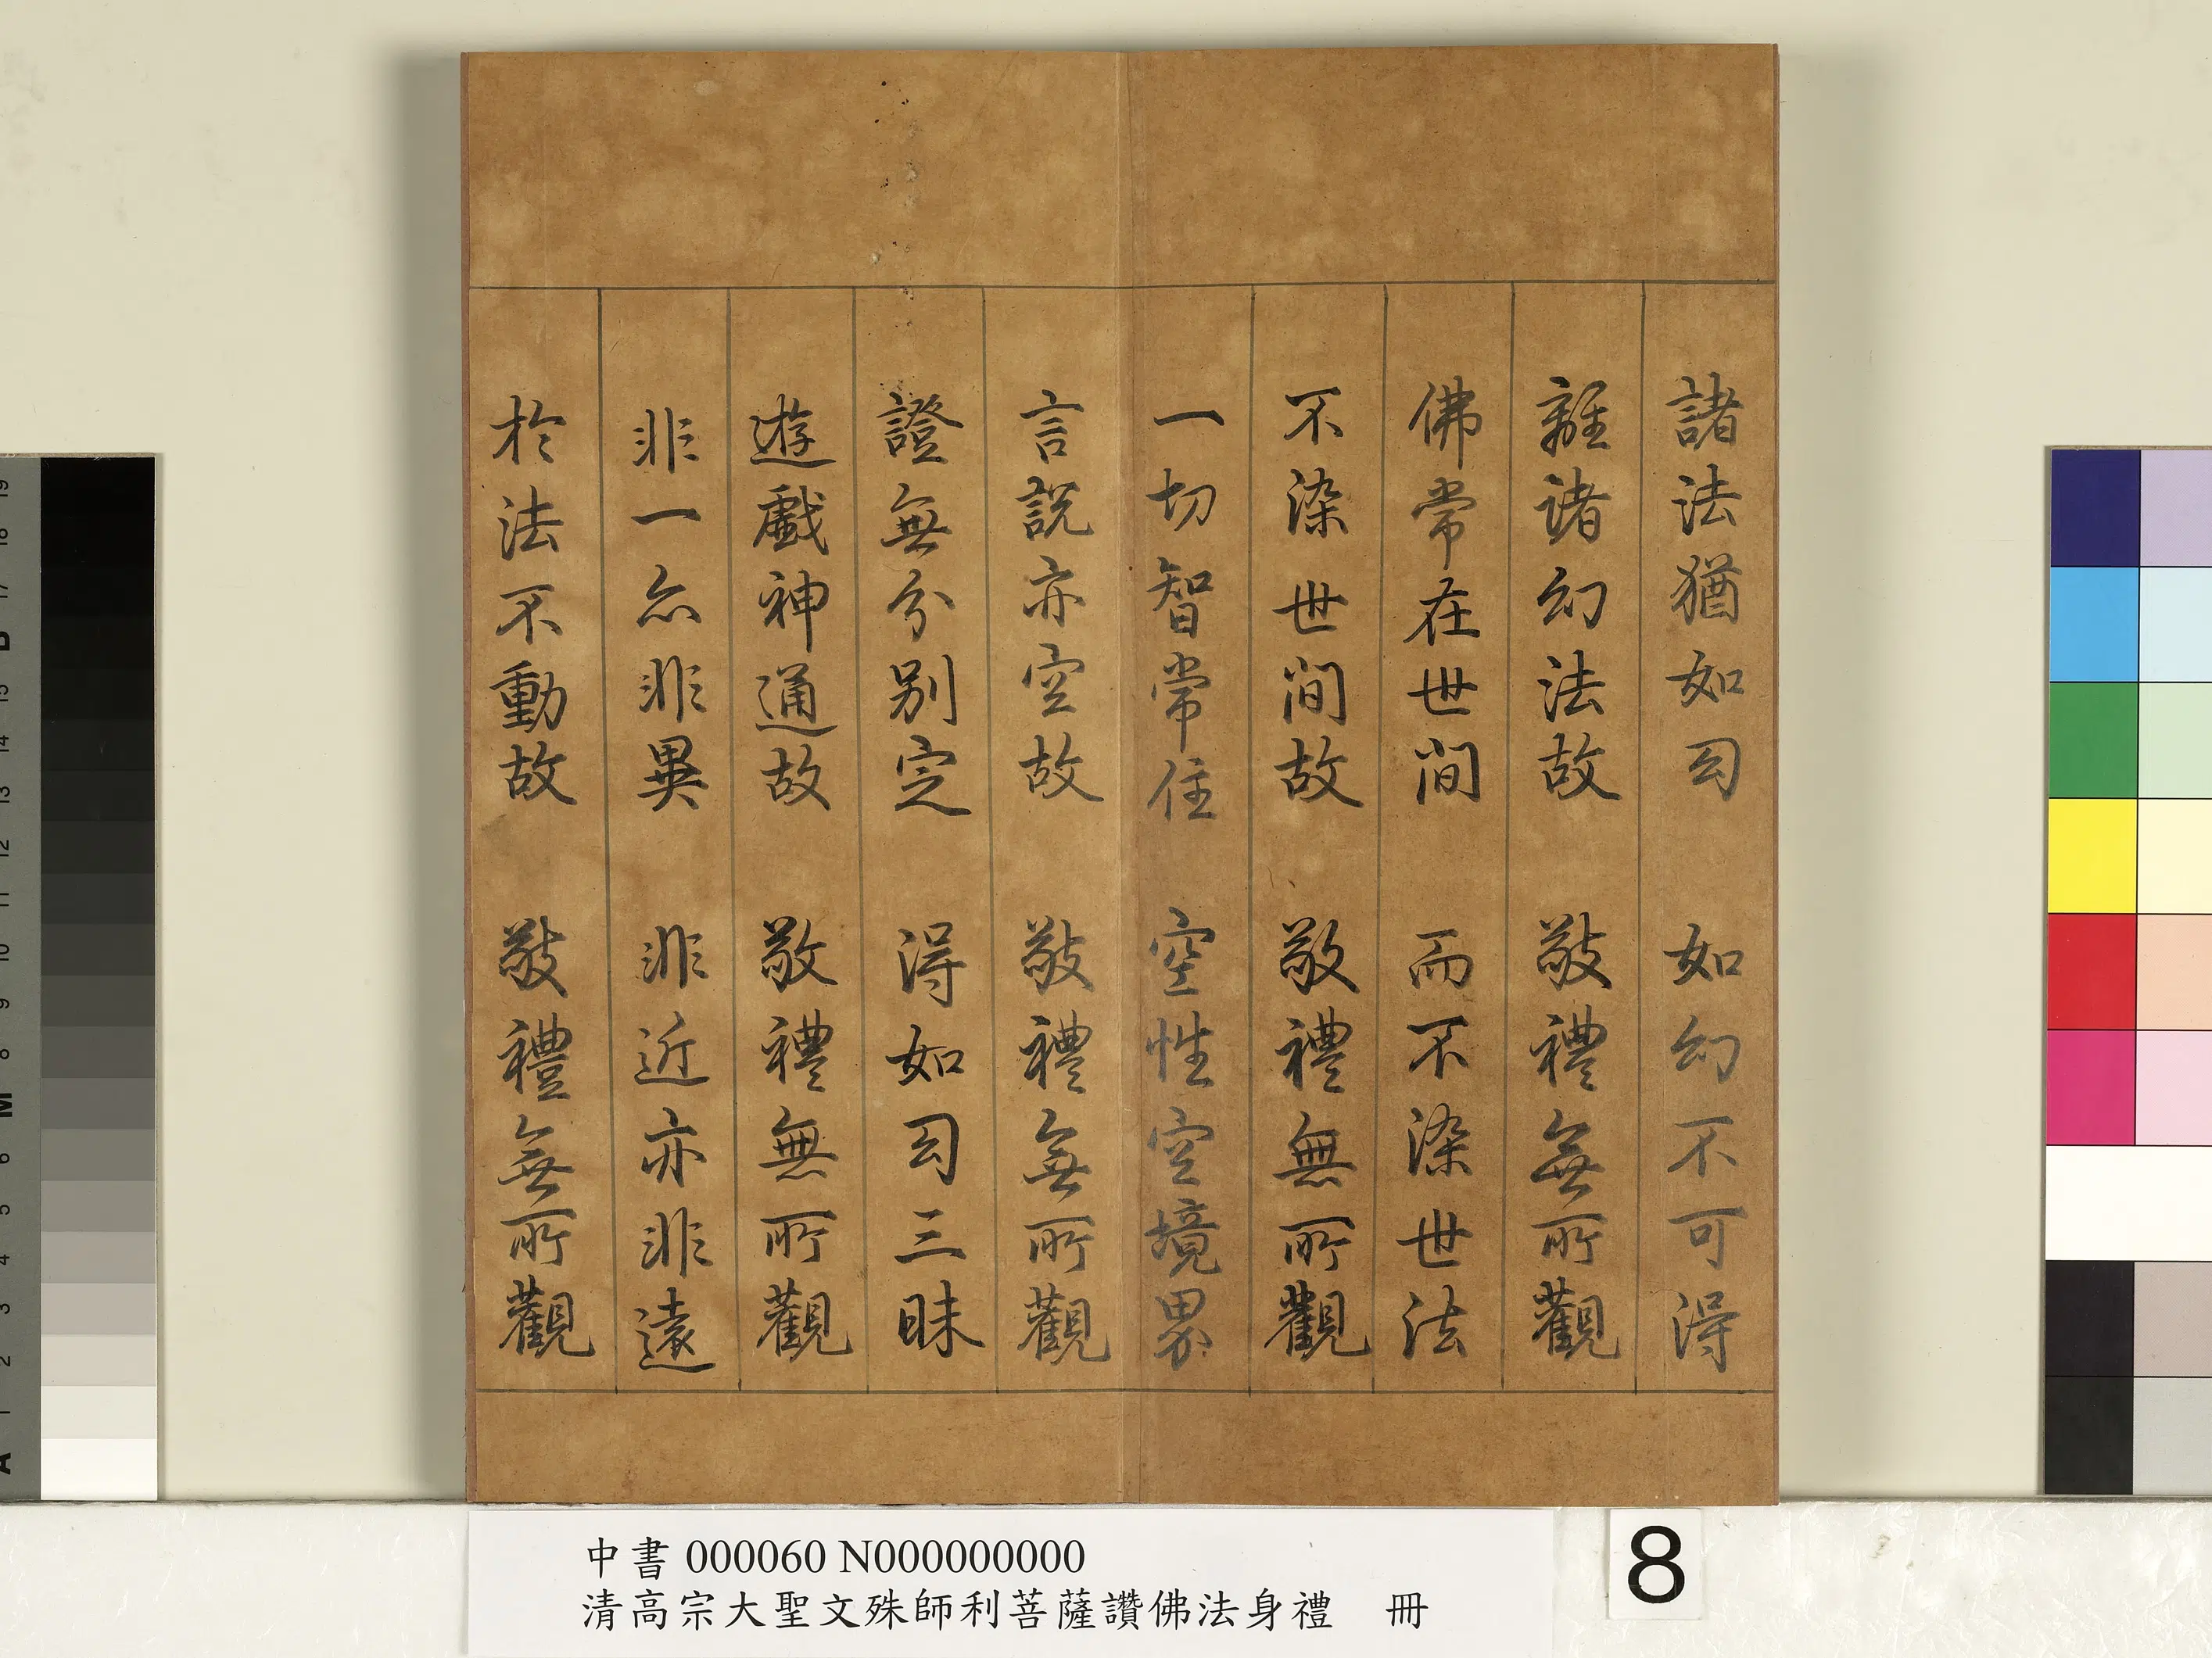 諸法猶如幻　如幻不可得
離諸幻法故　敬禮無所觀
佛常在世間　而不染世法
不染世間故　敬禮無所觀
一切智常住　空性空境界
言說亦空故　敬禮無所觀
證無分別定　得如幻三昧
遊戲神通故　敬禮無所觀
非一亦非異　非近亦非遠
於法不動故　敬禮無所觀
中書 000060 N000000000
清高宗大聖文殊師利菩薩讚佛法身禮　冊
8
19
18
17
B
15
14
13
12
11
10
9
8
M
6
5
4
3
2
1
A